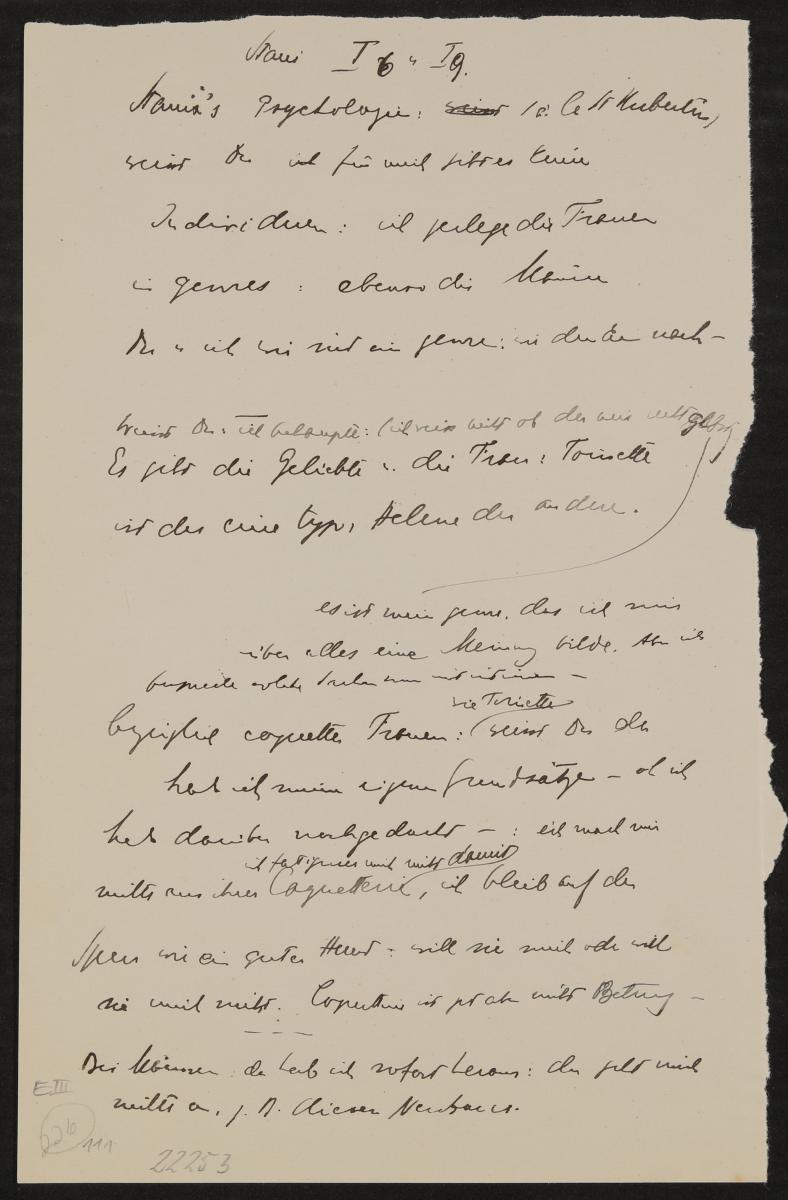 Stani I 6 u I 9.
Stani's Psychologie: weisst (s. Ce St Hubertus)
weisst Du ich für mich gibt es keine
Individuen: ich zerlege die Frauen
in genres: ebenso die Männer
Du u ich wir sind ein genre: wir denken nach –
weisst Du: ich behaupte: (ich weiss nicht ob das wer
Es gibt die Geliebte u. die Frau: Toinette
ist der eine typ, Helene der andere.
es ist mein genre, dass ich mir
über alles eine Meinung bilde. Aber ich
bespreche solche Sachen nur mit –
wie Toinette
Bezüglich coquetter Frauen: (weisst Du da
hab ich meine eigenen Grundsätze – ob ich
hab darüber nachgedacht – : ich mach mir
ich fatiguier mich nicht damit
nichts aus ihrer Coquetterie, ich bleib auf der
Spur wie ein guter Hund: will sie mich oder will
sie mich nicht. Coquetterie ist ja aber nicht Betrug –
– – –
Bei Männern: da hab ich sofort heraus: der geht mich
nichts an, z. B. dieser Neuhoff
E III
226 111
22253